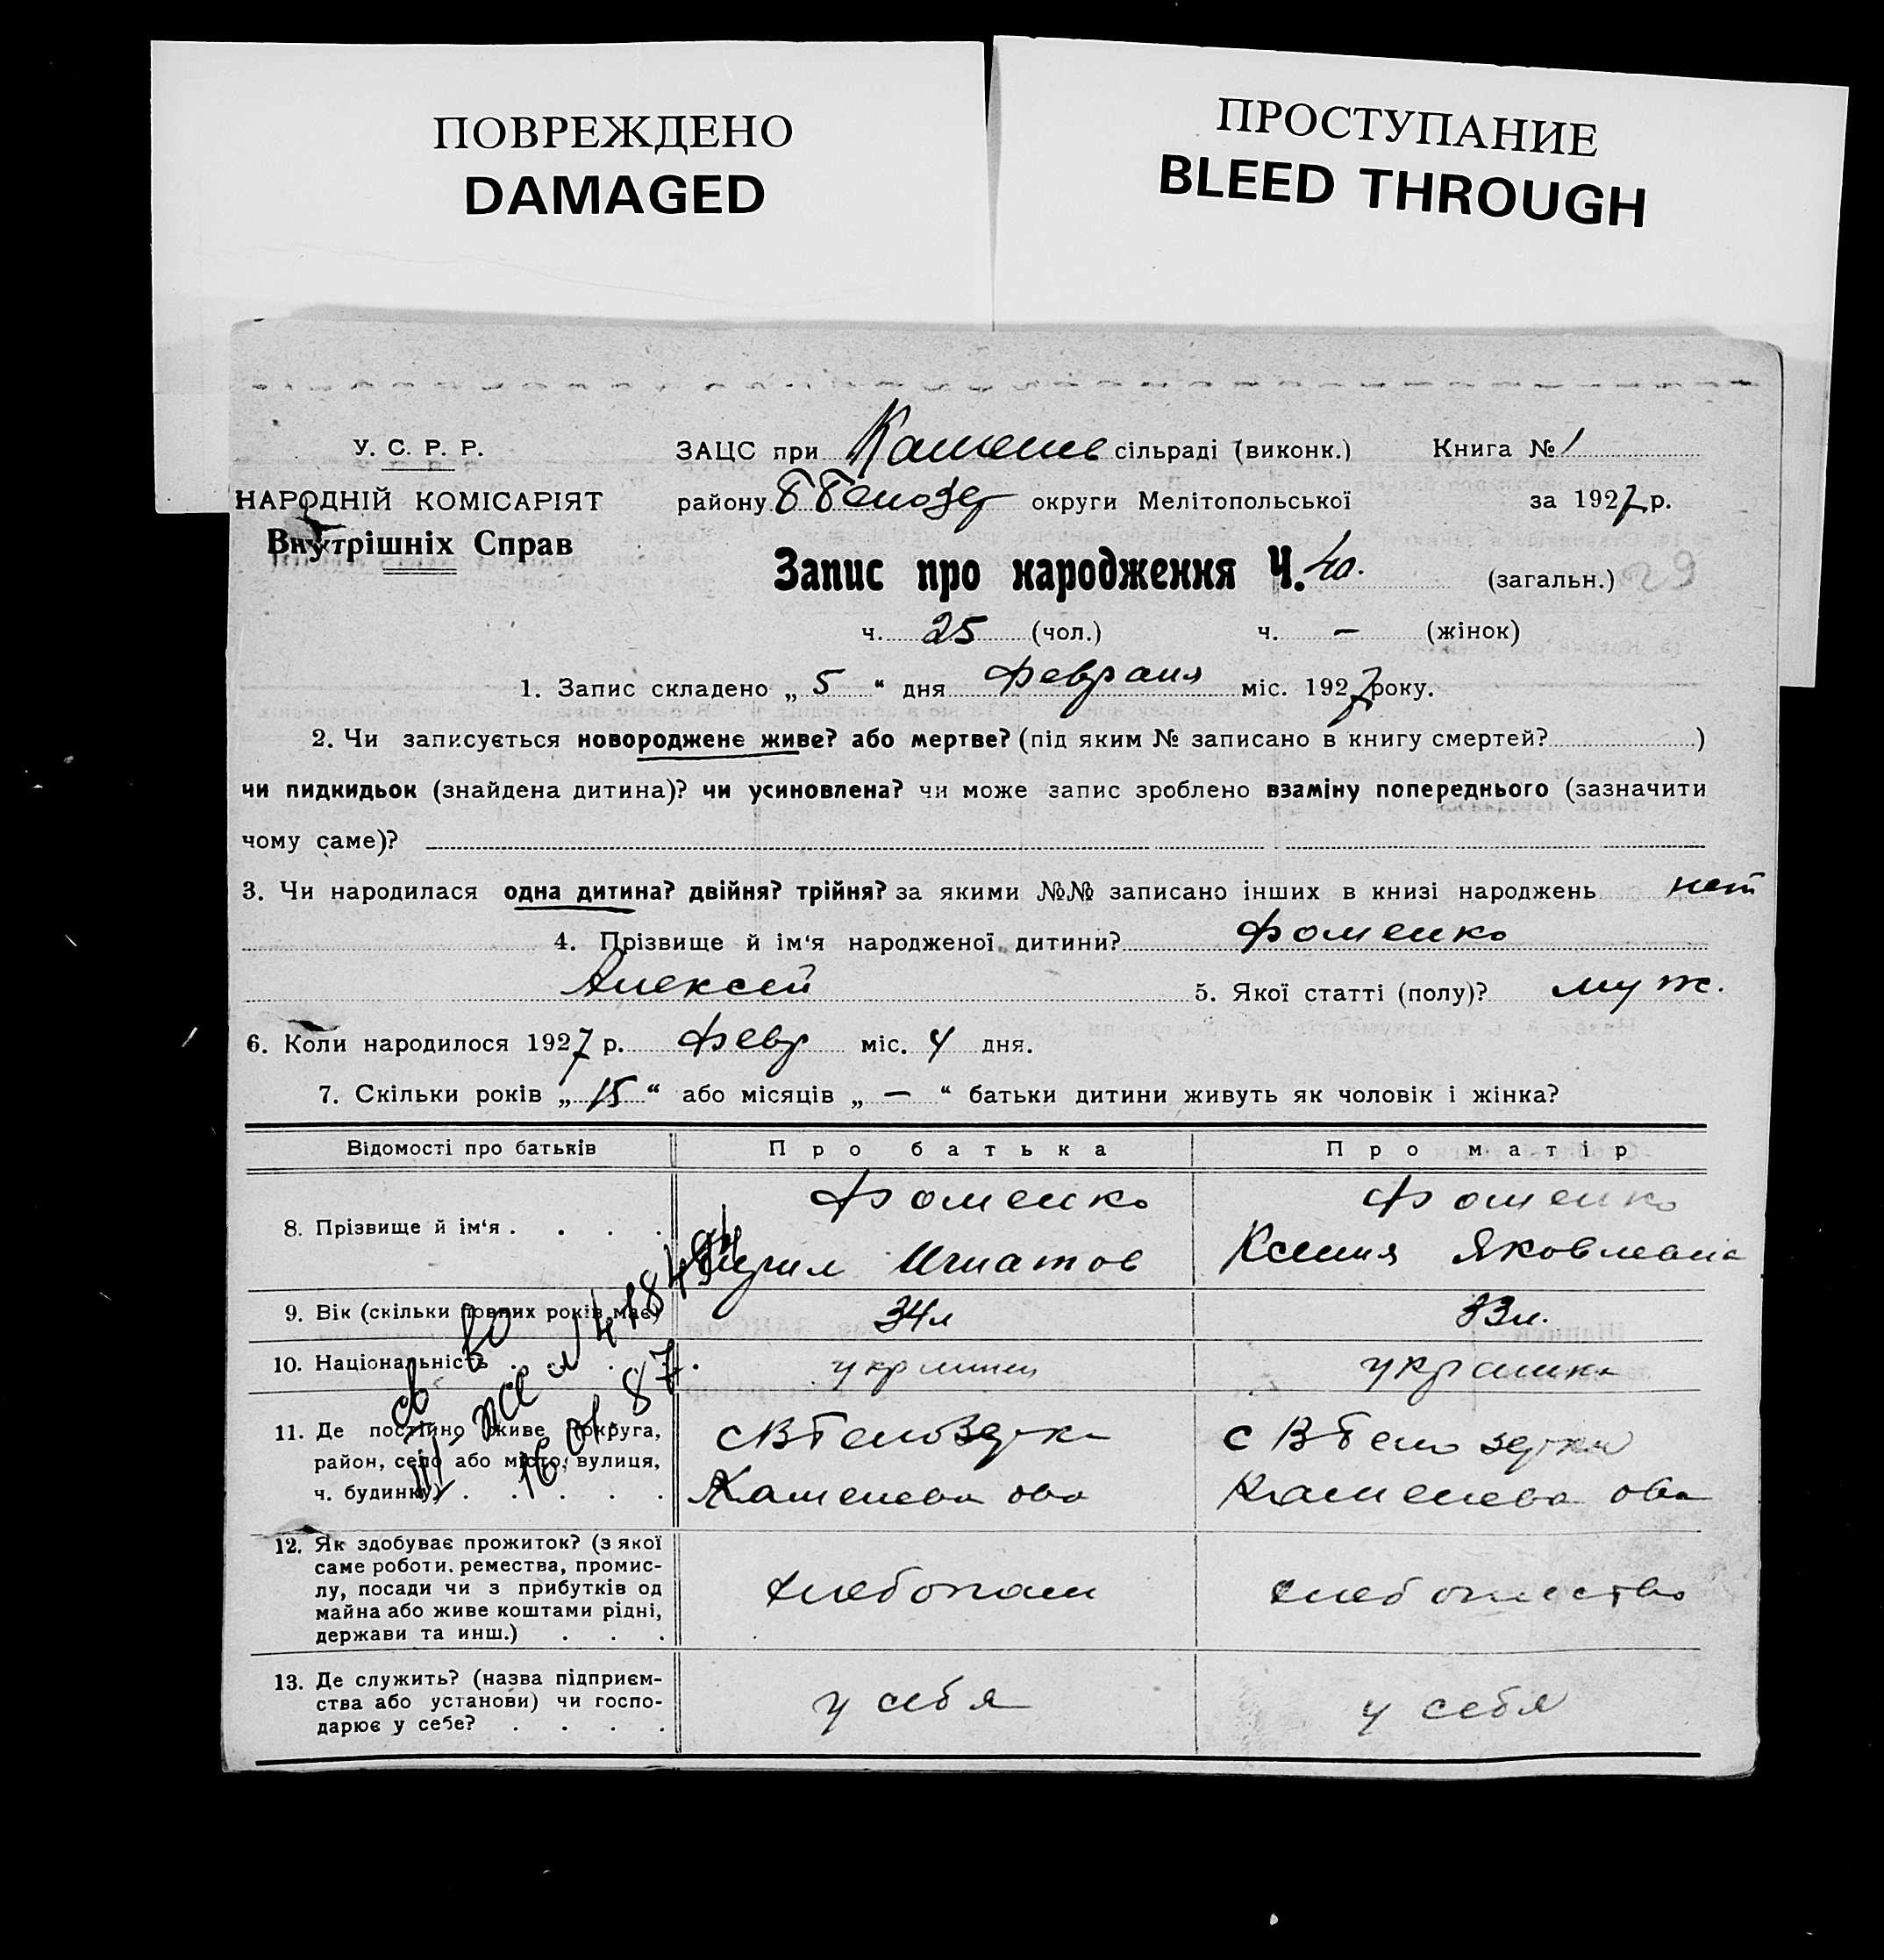 ПОВРЕЖДЕНО
DAMAGED
ПРОСТУПАНИЕ
BLEED THROUGH
У. С. Р. Р.
НАРОДНІЙ КОМІСАРІЯТ
Внутрішніх Справ
ЗАЦС при Каменев сільраді (виконк.) Книга № 1
району Б Белозер округи Мелітопольської за 1927 р.
Запис про народження Ч. 40. (загальн.)
ч. 25 (чол.) ч. — (жінок)
1. Запис складено „ 5 “ дня Февраля міс. 1927 року.
2. Чи записується новороджене живе? або мертве? (під яким № записано в книгу смертей? )
чи пидкидьок (знайдена дитина)? чи усиновлена? чи може запис зроблено взаміну попереднього (зазначити
чому саме)?
3. Чи народилася одна дитина? двійня? трійня? за якими №№ записано інших в книзі народжень нет
4. Прізвище й ім‘я народженої дитини? Фоменко
Алексей 5. Якої статті (полу)? муж.
6. Коли народилося 1927 р. Февр міс. 4 дня.
7. Скільки років „ 15 “ або місяців „ — “ батьки дитини живуть як чоловік і жінка?
Відомості про батьків Про батька Про матір
8. Прізвище й ім‘я . . . . Фоменко Фоменко
Кирил Игнатов Ксения Яковлевна
9. Вік (скільки повних років має) 34л 33л.
10. Національність . . . . украинец украинка
11. Де постійно живе (округа,
район, село або місто, вулиця,
ч. будинку) . . . . .
с В Белозерка с В Белозерка
Каменева ова Каменева ова
12. Як здобуває прожиток? (з якої
саме роботи, ремества, промис-
лу, посади чи з прибутків од
майна або живе коштами рідні,
держави та инш.) . . .
хлебопаш
13. Де служить? (назва підприєм-
ства або установи) чи госпо-
дарює у себе? . . . .
у себя у себя
16 01 87